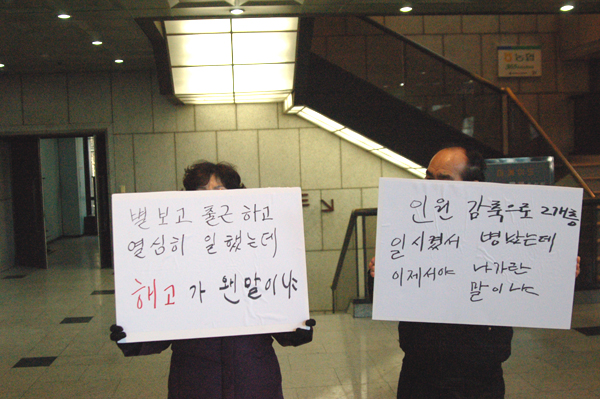 별 보고 출근 하고
열심히 일 했는데
해고 가 왠 말이냐
인원 감축으로 2개층
일 시켰서 병났는데
이제서야 나가란
말이냐
농협